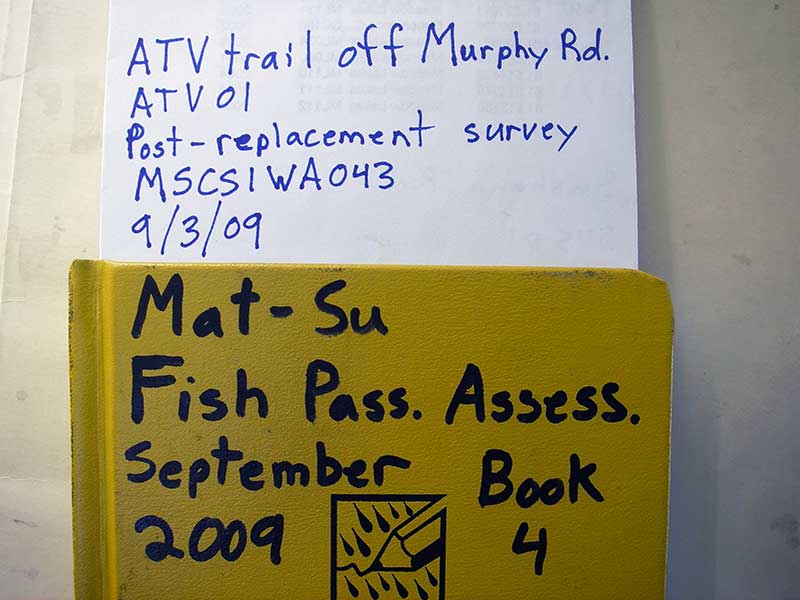 ATV trail off Murphy Rd.
ATV 01
Post-replacement survey
MSCS1WA043
9/3/09
Mat-Su
Fish Pass. Assess.
September Book
2009 4